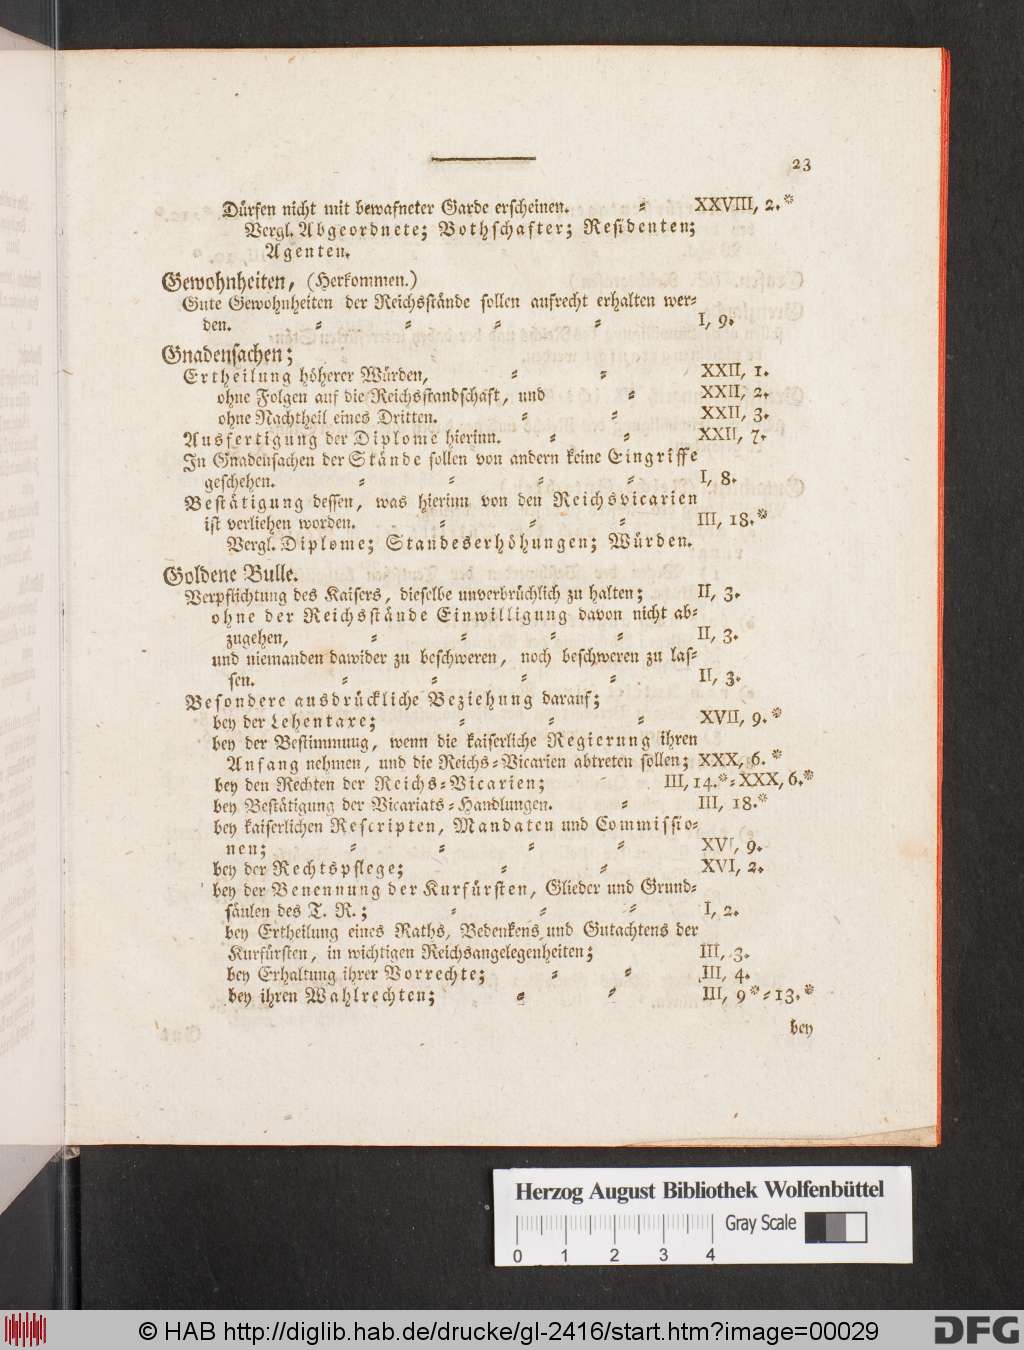 23
Dürfen nicht mit bewafneter Garde erscheinen. ⸗ XXVIII, 2.*
Vergl. Abgeordnete; Bothschafter; Residenten;
Agenten.
Gewohnheiten, (Herkommen.)
Gute Gewohnheiten der Reichsstände sollen aufrecht erhalten wer⸗
den. ⸗ ⸗ ⸗ ⸗ I, 9.
Gnadensachen;
Ertheilung höherer Würden, ⸗ ⸗ XXII, 1.
ohne Folgen auf die Reichsstandschaft, und ⸗ XXII, 2.
ohne Nachtheil eines Dritten. ⸗ ⸗ XXII, 3.
Ausfertigung der Diplome hierinn. ⸗ ⸗ XXII, 7.
In Gnadensachen der Stände sollen von andern keine Eingriffe
geschehen. ⸗ ⸗ ⸗ ⸗ I, 8.
Bestätigung dessen, was hierinn von den Reichsvicarien
ist verliehen worden. ⸗ ⸗ ⸗ III, 18.*
Vergl. Diplome; Standeserhöhungen; Würden.
Goldene Bulle.
Verpflichtung des Kaisers, dieselbe unverbrüchlich zu halten; II, 3.
ohne der Reichsstände Einwilligung davon nicht ab⸗
zugehen, ⸗ ⸗ ⸗ ⸗ II, 3.
und niemanden dawider zu beschweren, noch beschweren zu las⸗
sen. ⸗ ⸗ ⸗ ⸗ II, 3.
Besondere ausdrückliche Beziehung darauf;
bey der Lehentaxe; ⸗ ⸗ ⸗ XVII, 9.*
bey der Bestimmung, wenn die kaiserliche Regierung ihren
Anfang nehmen, und die Reichs⸗Vicarien abtreten sollen; XXX, 6.*
bey den Rechten der Reichs⸗Vicarien; III, 14.*⸗XXX, 6.*
bey Bestätigung der Vicariats⸗Handlungen. ⸗ III, 18.*
bey kaiserlichen Rescripten, Mandaten und Commissio⸗
nen; ⸗ ⸗ ⸗ ⸗ XVI, 9.
bey der Rechtspflege; ⸗ ⸗ XVI, 2.
bey der Benennung der Kurfürsten, Glieder und Grund⸗
säulen des T. R.; ⸗ ⸗ ⸗ I, 2.
bey Ertheilung eines Raths, Bedenkens und Gutachtens der
Kurfürsten, in wichtigen Reichsangelegenheiten; III, 3.
bey Erhaltung ihrer Vorrechte; ⸗ ⸗ III, 4.
bey ihren Wahlrechten; ⸗ ⸗ III, 9*⸗13.*
bey
Herzog August Bibliothek Wolfenbüttel
Gray Scale
0 1 2 3 4
© HAB http://diglib.hab.de/drucke/gl-2416/start.htm?image=00029
DFG